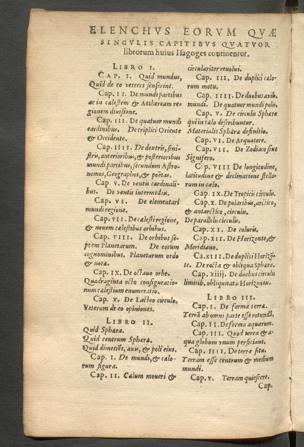 ELENCHVS EORVM QVÆ
SINGVLIS CAPITIBVS QVATVOR
librorum huius Isagoges continentur.
LIBRO I.
CAP. I. Quid mundus,
Quid de eo veteres senserint.
Cap. II. De mundi partibus
ac in cælestem & Ætheream re-
gionem diuisione.
Cap. III. De quatuor mundi
cardinibus. De triplici Oriente
& Occidente.
Cap. IIII. De dextris, sini-
stris, anterioribus, & posterioribus
mundi partibus, secundum Astro-
nomos, Geographos, & poëtas.
Cap. V. De ventis cardinali-
bus. De ventis intermedijs.
Cap. VI. De elementari
mundi regione.
Cap. VII. De cælesti regione,
& nouem cælestibus orbibus.
Cap. VIII. De orbibus se-
ptem Planetarum. De eorum
cognominibus. Planetarum ordo
& notæ.
Cap. IX. De octauo orbe.
Quadraginta octo configuratio-
num cælestium enumeratio.
Cap. X. De Lacteo circulo.
Veterum de eo opiniones.
LIBRO II.
Quid Sphæra.
Quid centrum Sphæræ.
Quid dimetiens, axis, & poli eius.
Cap. I. De mundi, & cælo-
rum figura.
Cap. II. Cælum moueri &
circulariter reuolui.
Cap. III. De duplici cælo-
rum motu.
Cap. IIII. De duobus axib.
mundi. De quatuor mundi polis.
Cap. V. De circulis Sphæræ
qui in cælo describuntur.
Materialis Sphæræ definitio.
Cap. VI. De Æquatore.
Cap. VII. De Zodiaco siue
Signifero.
Cap. VIII. De longitudine,
latitudine & declinatione stella-
rum in cælo.
Cap. IX. De Tropicis circulis.
Cap. X. De polaribus, arctico,
& antarctico, circulis.
De parallelis circulis.
Cap. XI. De coluris.
Cap. XII. De Horizonte, &
Meridiano.
Ca. XIII. De duplici Horizõ-
te. De recta & obliqua Sphæra.
Cap. XIIIJ. De duobus circulis
limitib. obliquitatis Horizontis.
LIBRO III.
Cap. I. De forma terræ.
Terrã ab omni parte esse rotundã.
Cap. II. De forma aquarum.
Cap. III. Quod terra & a-
qua globum vnum perficiant.
Cap. IIII. De terræ situ.
Terram esse centrum & medium
mundi.
Cap. V. Terram quiescere.
Cap.